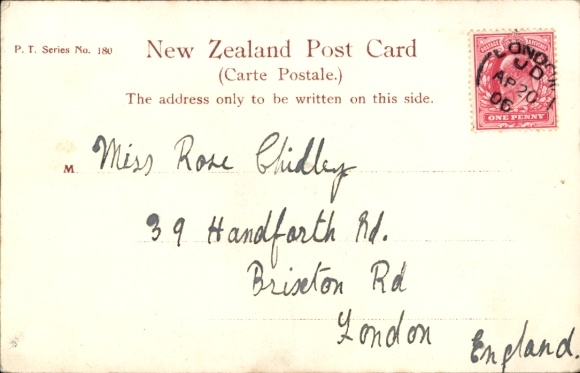 P. T. Series No. 180
New Zealand Post Card
(Carte Postale.)
The address only to be written on this side.
POSTAGE REVENUE
ONE PENNY
LONDON
AP 20
06
M Miss Rose Chidley
39 Handforth Rd.
Brixton Rd
London
England.